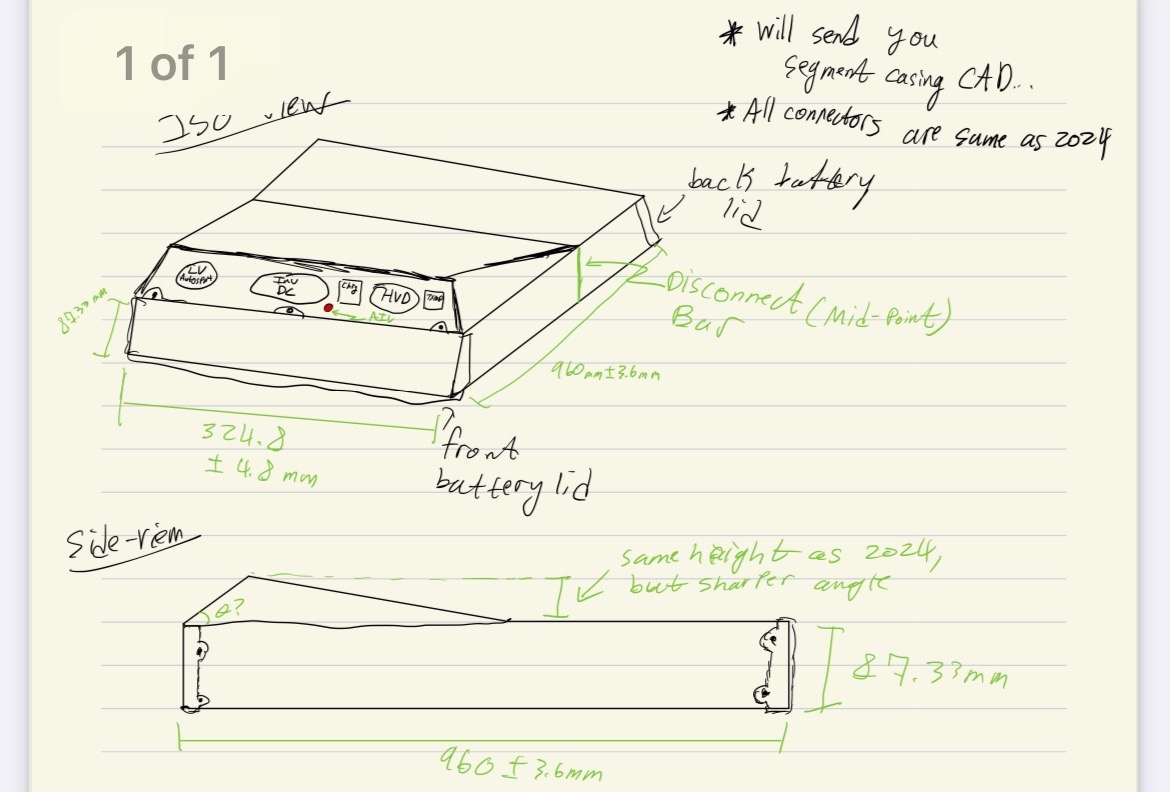 1 of 1
* Will send you
segment casing CAD...
* All connectors are same as 2024
Iso view
back battery
lid
LV
Autosport
Inv
DC
Chg
HVD
AIL
87.33 mm
Disconnect (Mid-Point)
Bar
960mm±3.6mm
324.8
± 4.8 mm
front
battery lid
Side-view
same height as 2024,
but sharper angle
θ?
87.33mm
960 ± 3.6mm